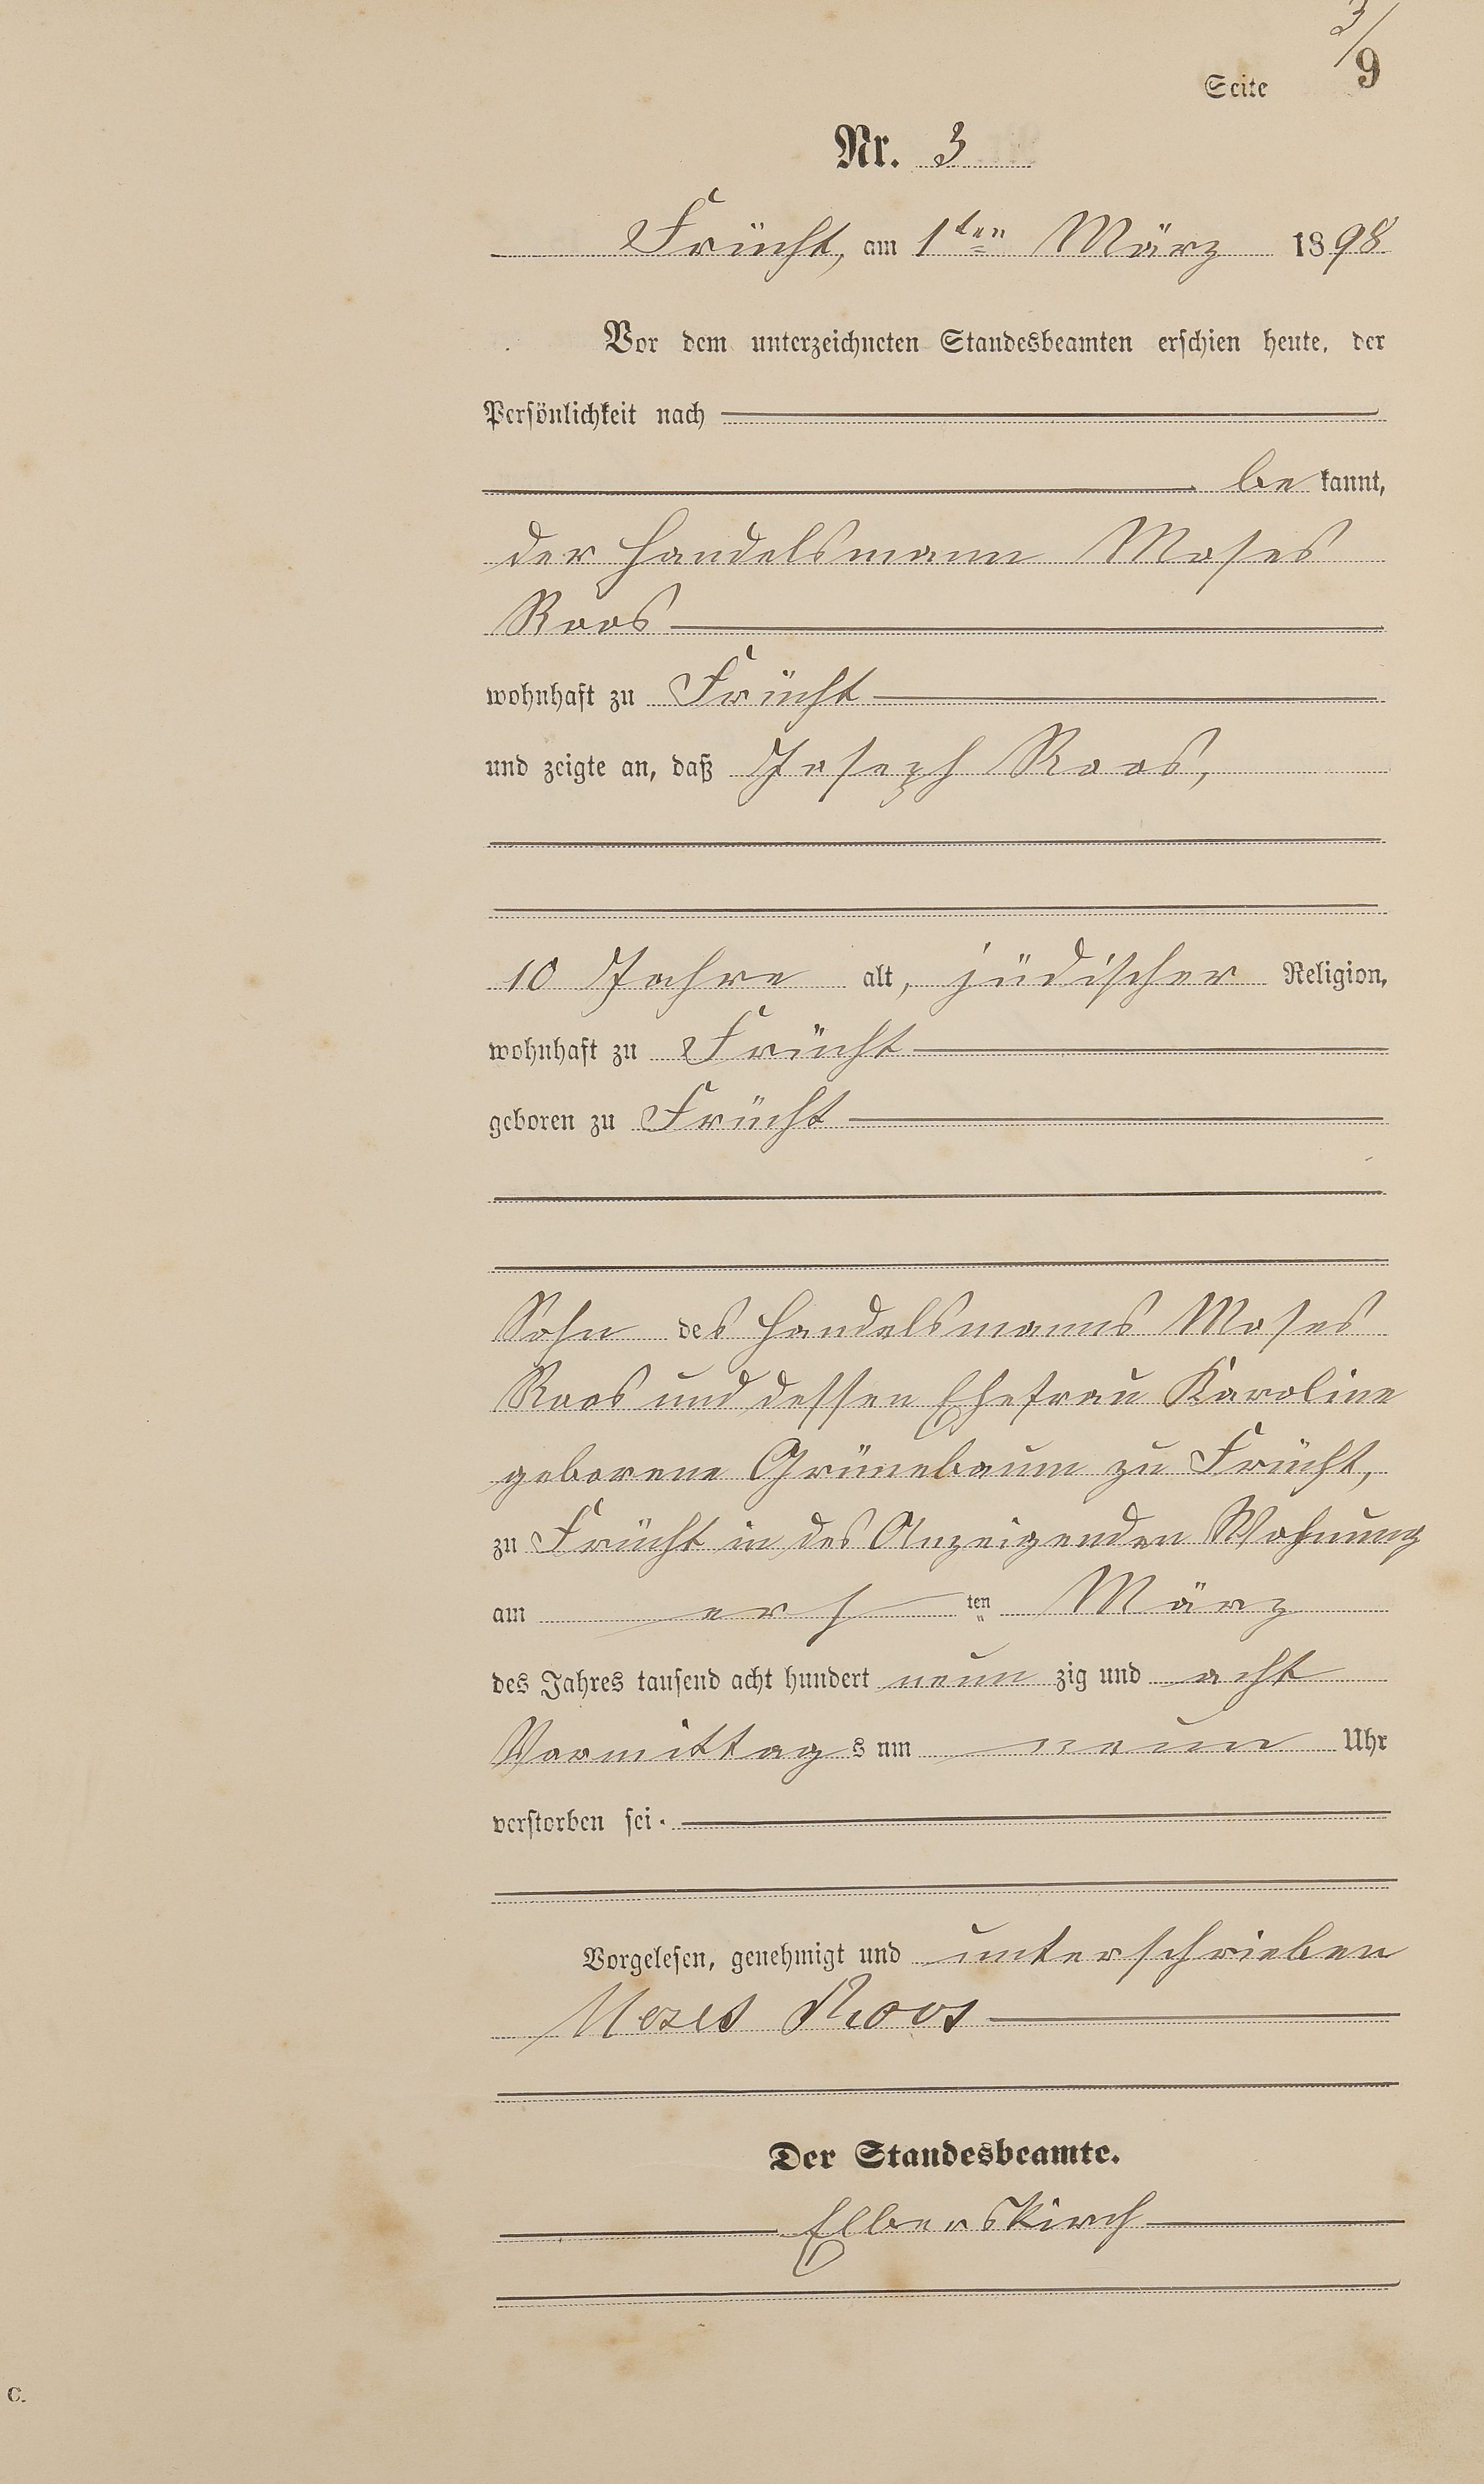 3/
Seite 9
Nr. 3
Frücht, am 1ten März 1898
Vor dem unterzeichneten Standesbeamten erschien heute, der
Persönlichkeit nach
be kannt,
der Handelsmann Moses
Roos
wohnhaft zu Frücht
und zeigte an, daß Joseph Roos,
10 Jahre alt, jüdischer Religion,
wohnhaft zu Frücht
geboren zu Frücht
Sohn des Handelsmanns Moses
Roos und dessen Ehefrau Karoline
geborene Grünebaum zu Frücht,
zu Frücht in des Anzeigenden Wohnung
am ers ten März
des Jahres tausend acht hundert neun zig und acht
Vormittag s um neun Uhr
verstorben sei.
Vorgelesen, genehmigt und unterschrieben
Moses Roos
Der Standesbeamte.
Elberskirch
C.